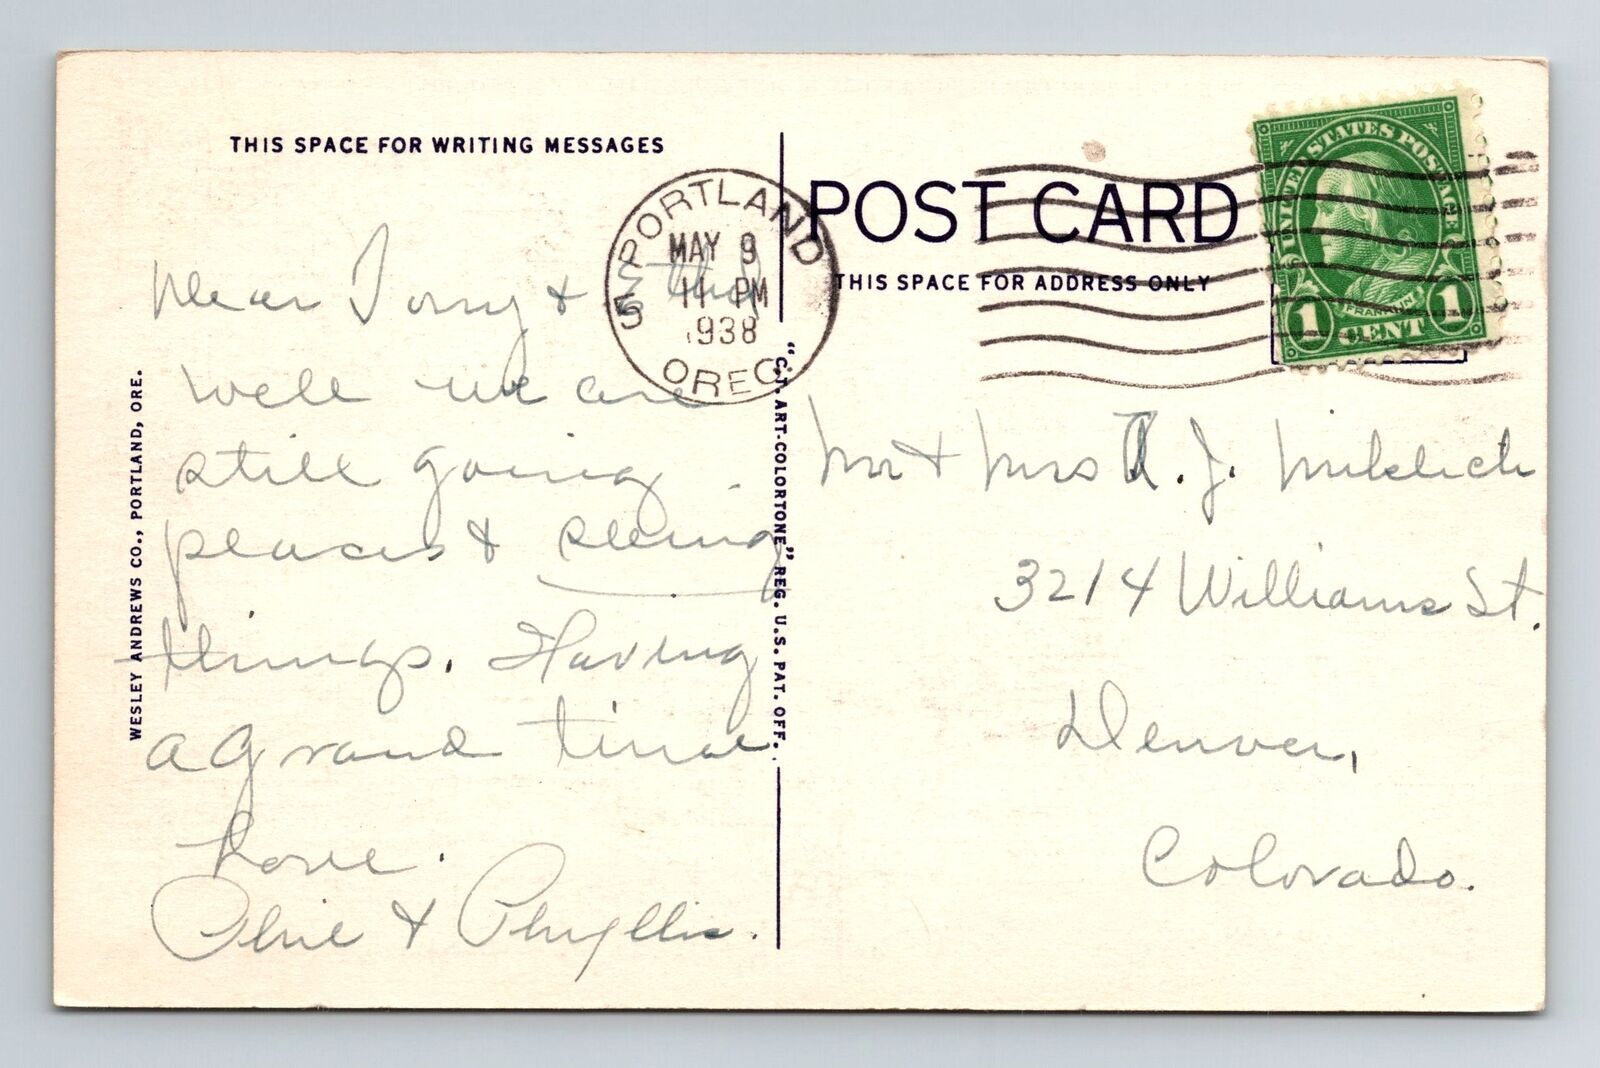 THIS SPACE FOR WRITING MESSAGES
Dear Tony &
well we are
still going
places & seeing
things. Having
a grand time
Love.
Phil & Phyllis.
WESLEY ANDREWS CO., PORTLAND, ORE.
"C.T. ART-COLORTONE" REG. U.S. PAT. OFF.
PORTLAND
MAY 9
11 PM
1938
OREG.
5
POST CARD
THIS SPACE FOR ADDRESS ONLY
UNITED STATES POSTAGE
FRANKLIN
1 CENT 1
Mr & Mrs J. Miklich
3214 Williams St.
Denver,
Colorado.